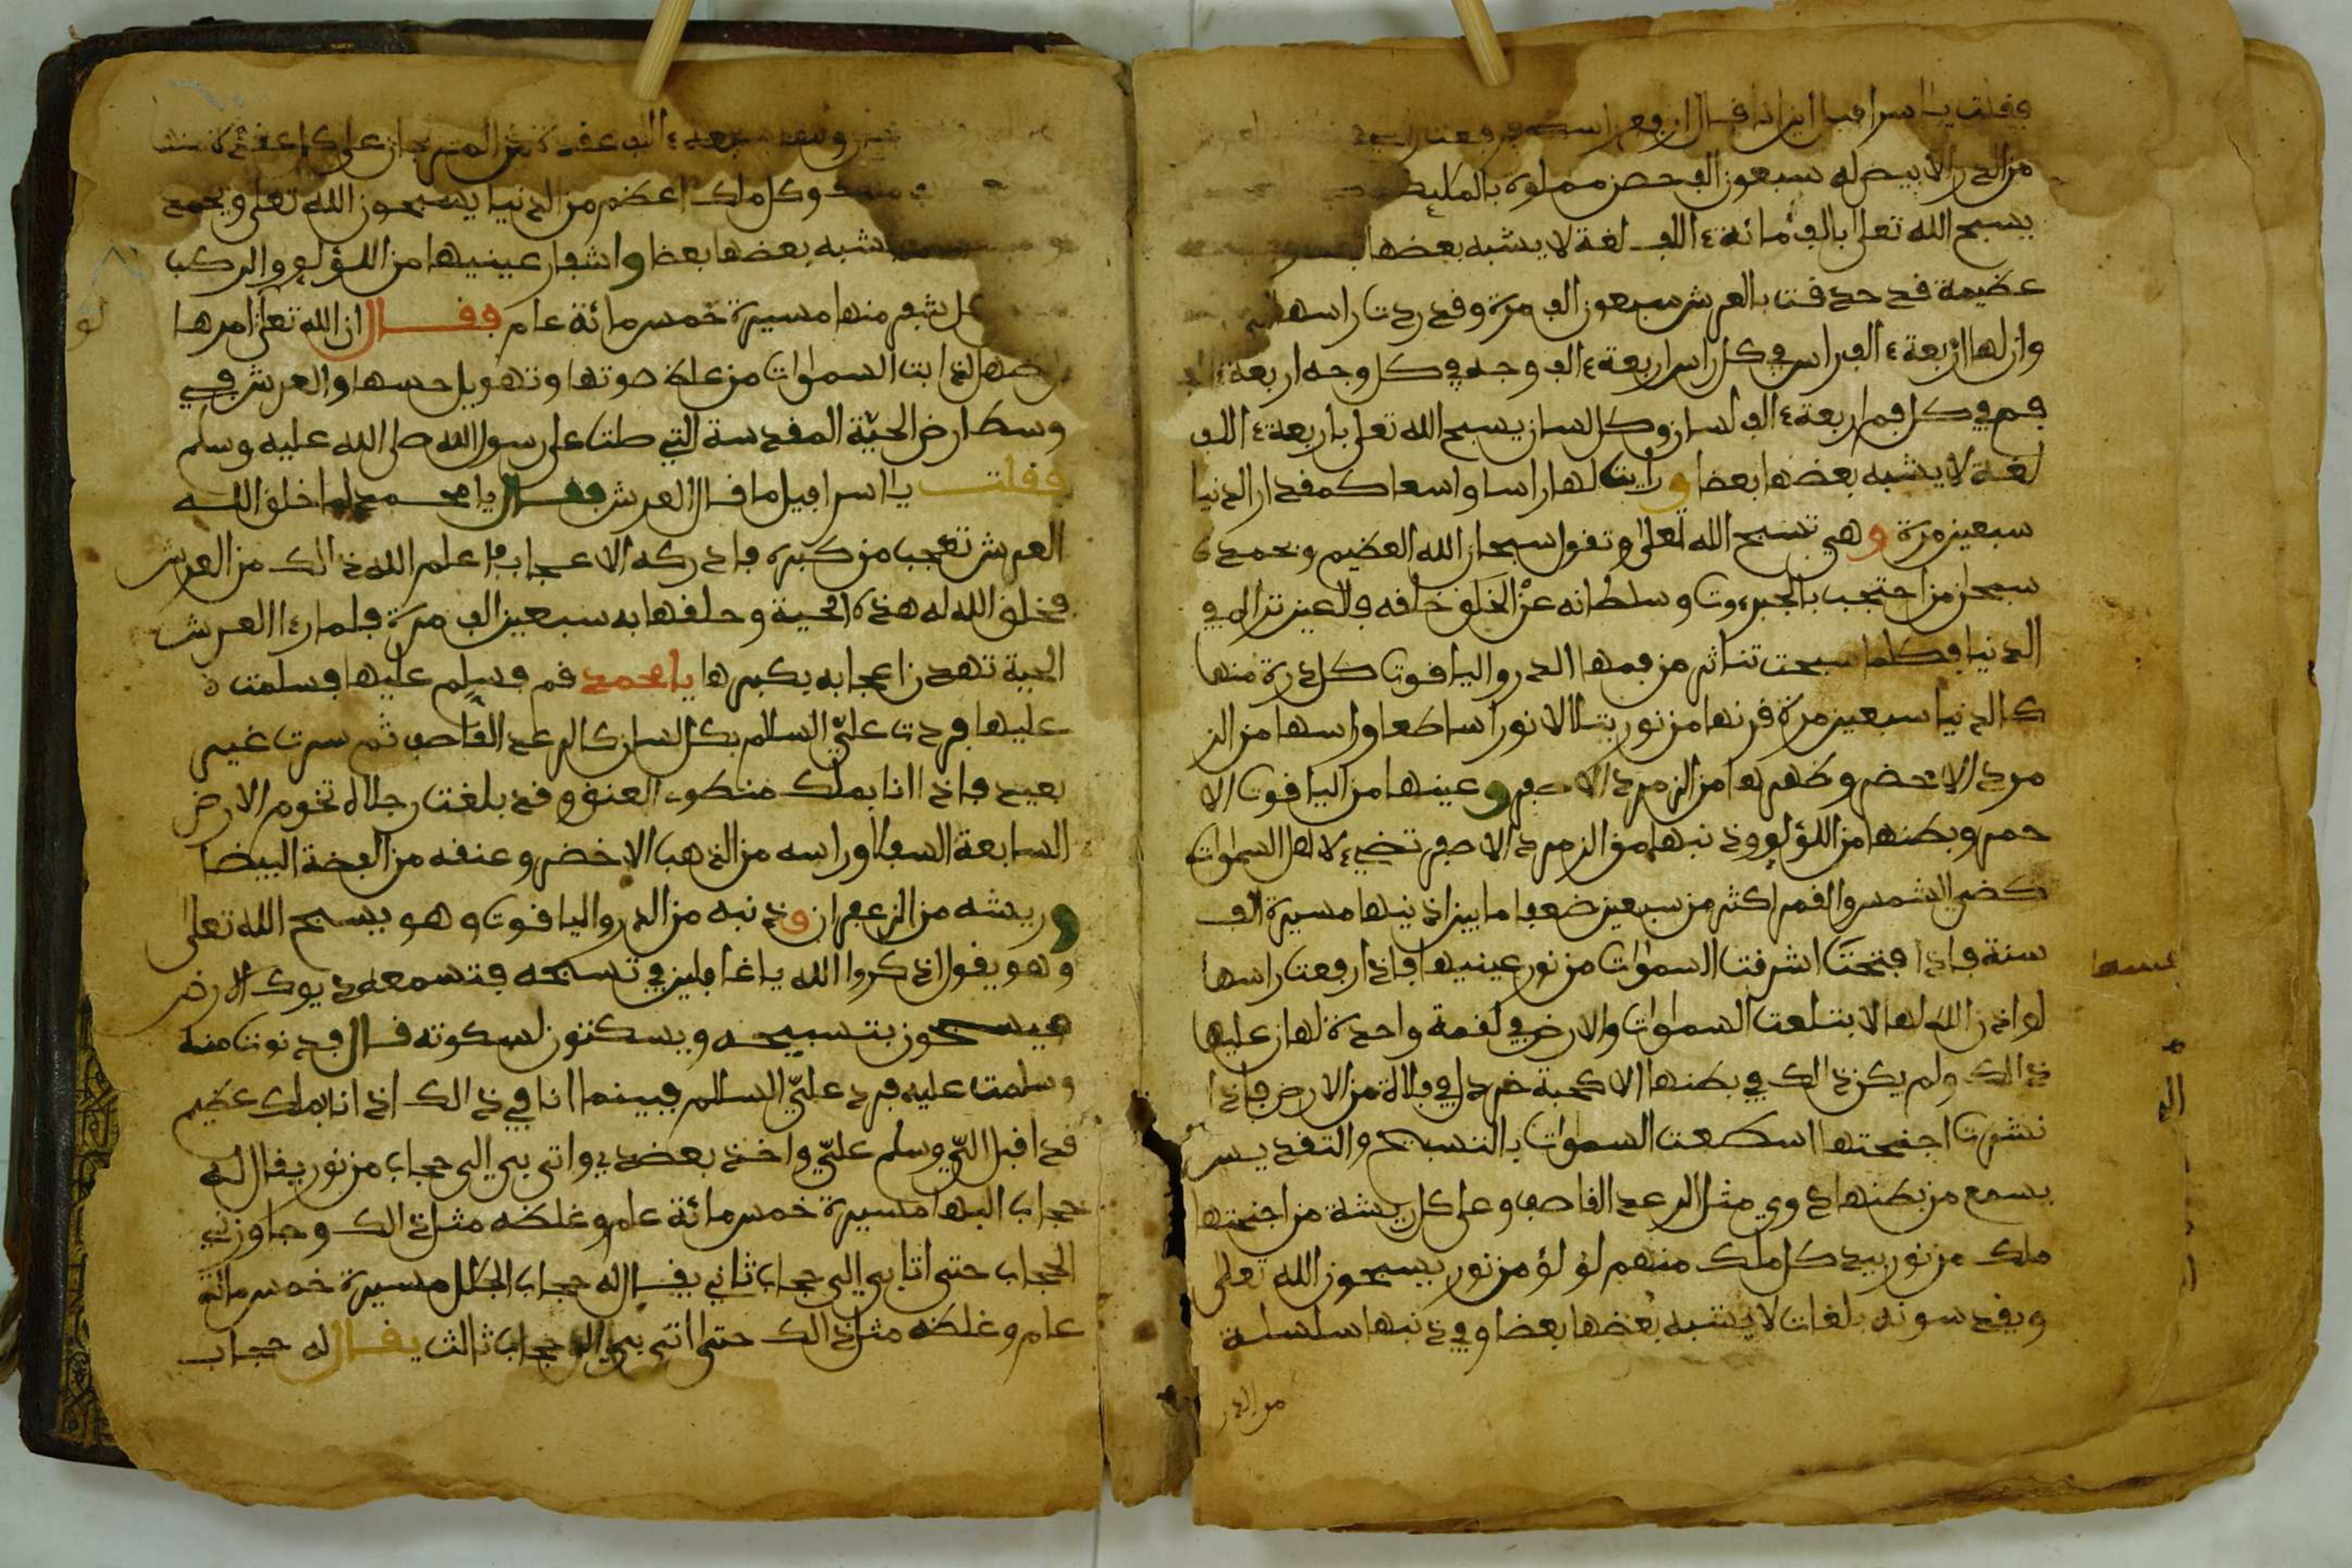 فقلت يا اسرافيل اين انا قال ارفع راسك فرفعت راسي
من الدر الابيض له سبعون الف حصن مملوة بالمليكة
يسبح الله تعلى بالف مائة الف لغة لا يشبه بعضها
عظيمة قد حدقت بالعرش سبعون الف مرة وقد ردت راسها
وان لها اربعة الف راس في كل راس اربعة الف وجه في كل وجه اربعة
فم في كل فم اربعة الف لسان وكل لسان يسبح الله تعلى باربعة الف
لغة لا يشبه بعضها بعضا ورايت لها راسا واسعا كمقدار الدنيا
سبعين مرة وهي تسبح الله تعلى وتقول سبحان الله العظيم وبحمده
سبحان من احتجب بالجبروت وسلطانه عن الخلق خلقه
الدنيا فكلما سبحت تناثر من فمها الدر والياقوت كل درة منها
كالدنيا سبعين مرة قرنها من نور يتلالا نورا ساطعا وراسها من الز
مرد الاخضر وظهرها من الزمرد الاصفر وعينها من الياقوت الا
حمر وبطنها من اللؤلؤ وذنبها من الزمرد الاصفر تضيء لاهل السموات
كضي الشمس والقمر اكثر من سبعين ضعفا ما بين اذنيها مسيرة الف
سنة فاذا فتحت اشرقت السموات من نور عينيها فاذا رفعت راسها
لو اذن الله لها لابتلعت السموات والارض في لقمة واحدة لهان عليها
ذالك ولم يكن ذالك في بطنها الا كحبة خردل في فلاة من الارض فاذا
نشرت اجنحتها اسكعت السموات بالتسبيح والتقديس
يسمع من بطنها دوي مثل الرعد القاصف وعلى كل ريشة من اجنحتها
ملك من نور بيد كل ملك منهم لؤلؤ من نور يسبحون الله تعلى
ويقدسونه بلغات لا يشبه بعضها بعضا وفي ذنبها سلسلة
من الدر
اربعة الف عقدة على كل عقدة منها
وكل ملك اعظم من الدنيا يسبحون الله تعلى وبحمد
يشبه بعضها بعضا واشفار عينيها من اللؤلؤ والركب
كل شفر منها مسيرة خمس مائة عام فقال ان الله تعلى امرها
لذابت السموات من علة صوتها وتهويل حسها والعرش في
وسط ارض الحية المقدسة التي صلت على رسول الله صلى الله عليه وسلم
فقلت يا اسرافيل ما قال العرش فقال يا محمد لما خلق الله
العرش تعجب من كبره فادركه الاعجاب فاعلم الله ذالك من العرش
فخلق الله له هذه الحية وحلقها به سبعين الف مرة فلما رءا العرش
الحية تهدن اعجابه بكبرها يا محمد قم فسلم عليها فسلمت
عليها فردت علي السلام بكل لسان كالرعد القاصف ثم سرت غير
بعيد فاذا انا بملك منكوب العنق وقد بلغت رجلاه تخوم الارض
السابعة السفلا وراسه من الذهب الاخضر وعنقه من الفضة البيضا
وريشه من الزعفران وذنبه من الدر والياقوت وهو يسبح الله تعلى
وهو يقول اذكروا الله يا غافلين في تسبيحه فتسمعه ديوك الارض
فيسبحون بتسبيحه ويسكتون لسكوته قال فدنوت منه
وسلمت عليه فرد علي السلام فبينما انا في ذالك اذ انا بملك عظيم
قد اقبل الي وسلم علي واخذ بعضدي واتى بي الى حجاب من نور يقال له
حجاب البها مسيرة خمس مائة عام وغلظه مثل ذالك وجاوزني
الحجاب حتى اتا بي الى حجاب ثاني يقال له حجاب الجلال مسيرة خمس مائة
عام وغلظه مثل ذالك حتى اتى بي الى حجاب ثالث يقال له حجاب